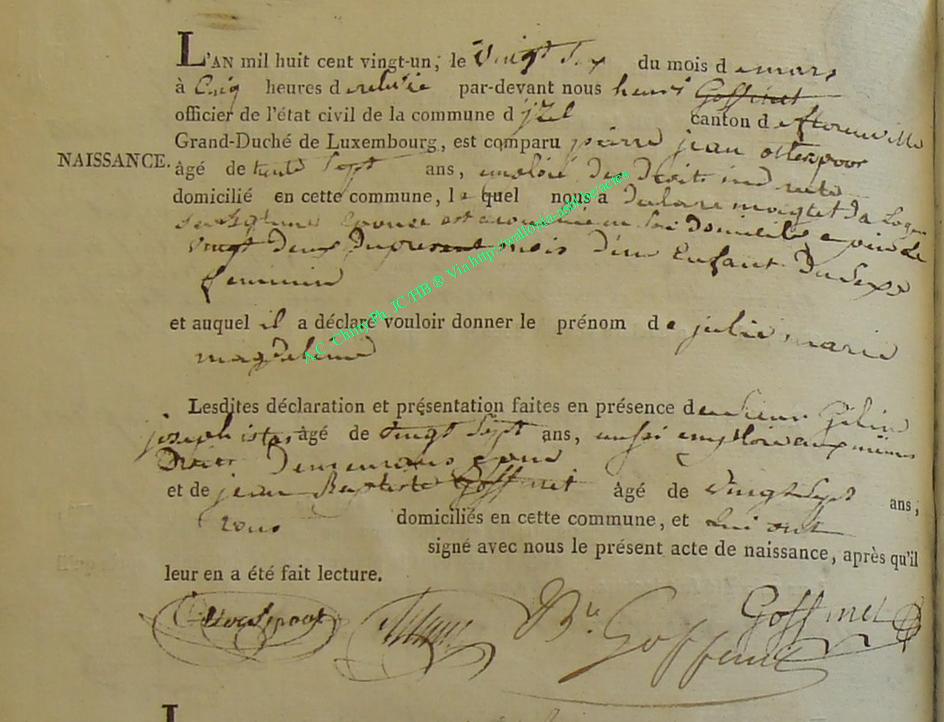 L'AN mil huit cent vingt-un, le vingt six du mois de mars
à cinq heures de relevée par-devant nous henri Goffinet
officier de l'état civil de la commune d'jzel canton de florenville
Grand-Duché de Luxembourg, est comparu pierre jean otterpoor
NAISSANCE.
âgé de trente sept ans, emploié des droits
domicilié en cette commune, le quel nous a declare
epouse est accouchée en Son domicile
vingt deux du present mois d'un Enfant du Sexe
feminin
et auquel il a déclaré vouloir donner le prénom de julie marie
magdeleine
Lesdites déclaration et présentation faites en présence de
joseph âgé de vingt Sept ans, aussi emploié aux mêmes
Droits Demeurant
et de jean Baptiste Goffinet âgé de vingt Sept ans,
tous domiciliés en cette commune, et qui ont
signé avec nous le présent acte de naissance, après qu'il
leur en a été fait lecture.
Goffinet
Goffinet
A.C. Chiny Ph. JC HB ® Via http: